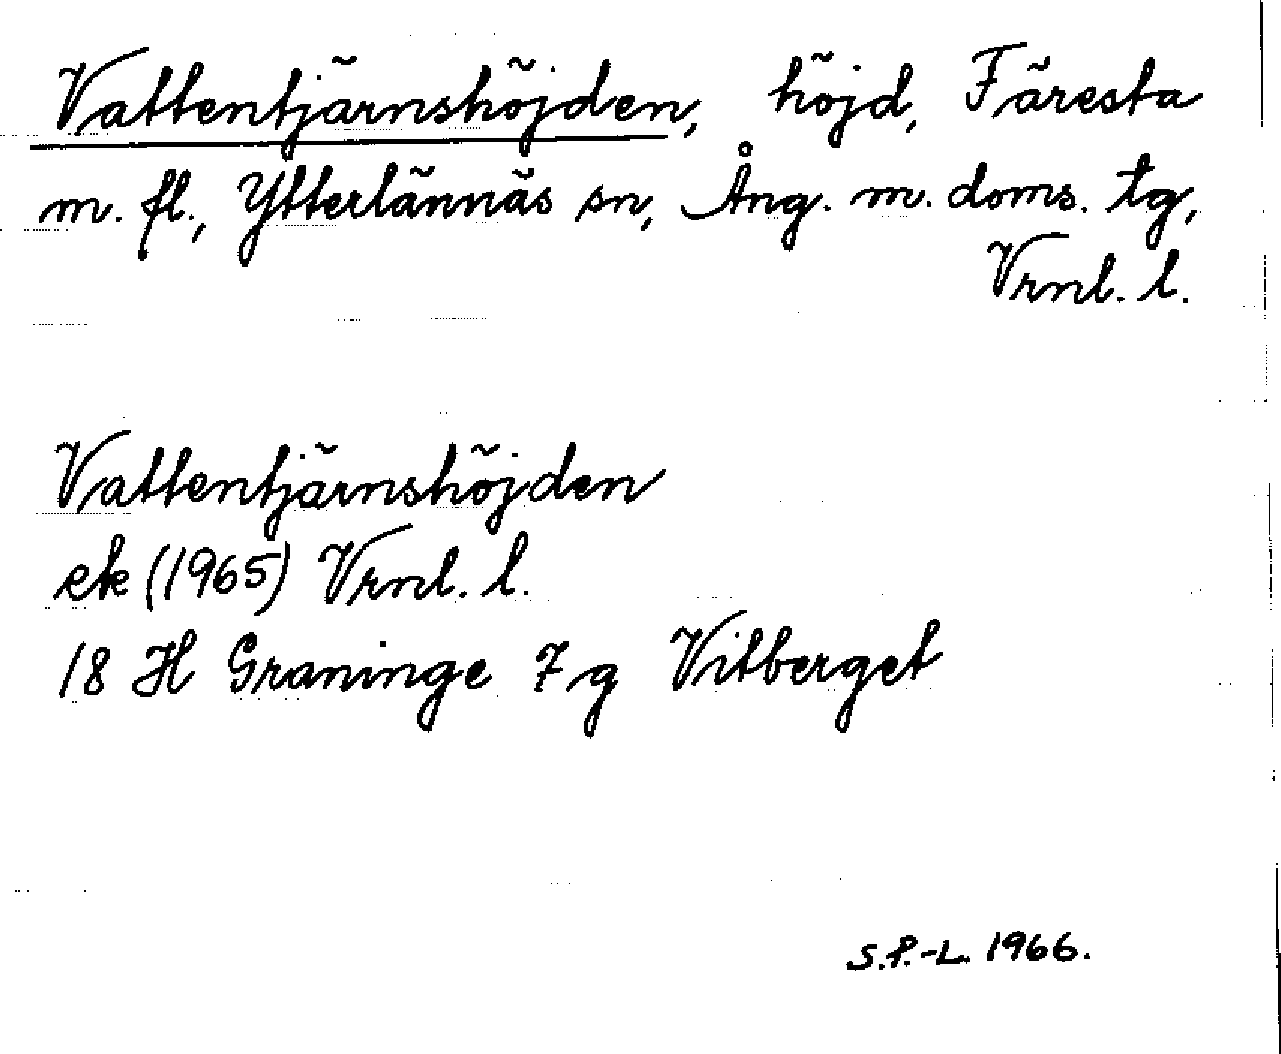 Vattentjärnshöjden, höjd, Färesta
m. fl., Ytterlännäs sn, Ång. m. doms. tg,
Vrnl. l.
Vattentjärnshöjden
ek (1965) Vrnl. l.
18 H Graninge 7 g Vitberget
S.P.-L. 1966.